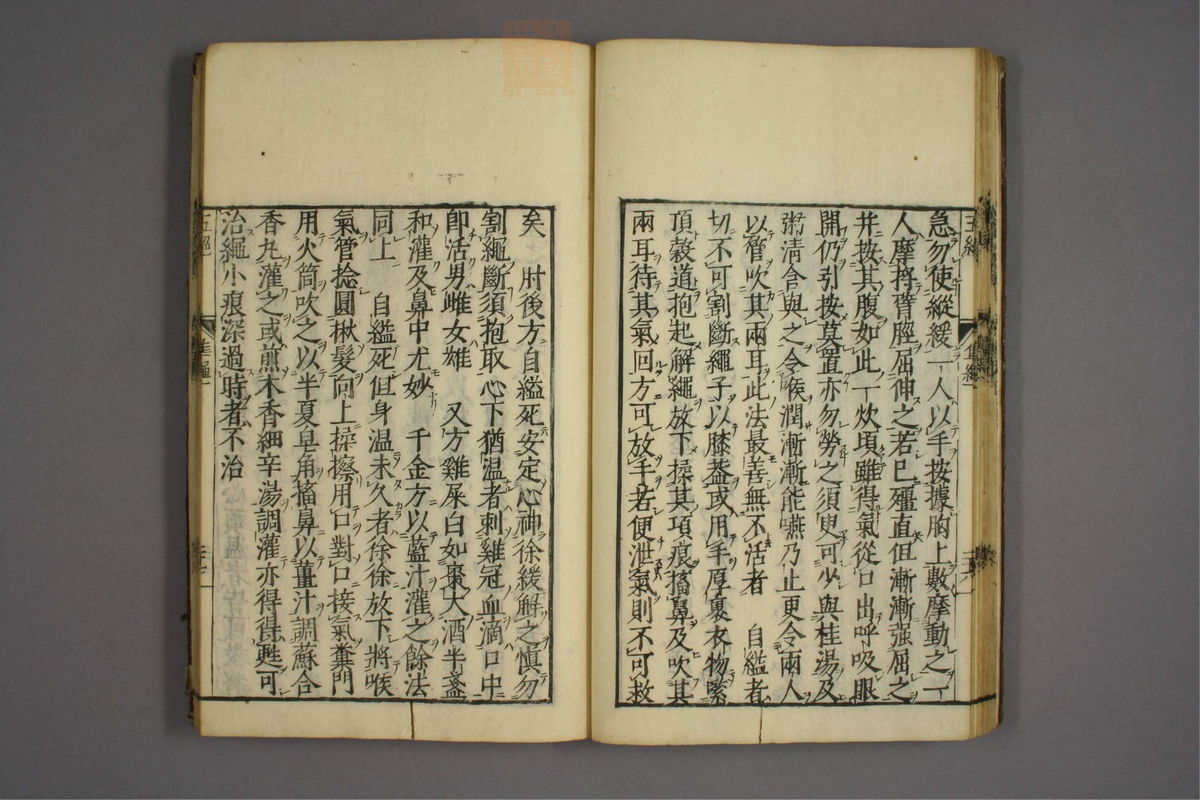 急勿使縱緩一人以手按據胸上數摩動之一
人摩捋臂脛屈伸之若已殭直但漸漸強屈之
并按其腹如此一炊頃雖得氣從口出呼吸眼
開仍引按莫置亦勿勞之須臾可少與桂湯及
粥清含與之令喉潤漸漸能嚥乃止更令兩人
以管吹其兩耳此法最善無不活者　自縊者
切不可割斷繩子以膝蓋或用手厚裹衣物緊
頂穀道抱起解繩放下揉其項痕搐鼻及吹其
兩耳待其氣回方可放手若便泄氣則不可救
矣　肘後方自縊死安定心神徐緩解之慎勿
割繩斷須抱取心下猶温者刺雞冠血滴口中
即活男雌女雄　又方雞屎白如棗大酒半盞
和灌及鼻中尤妙　千金方以藍汁灌之餘法
同上　自縊死但身温未久者徐徐放下將喉
氣管捻圓揪髮向上揉擦用口對口接氣糞門
用火筒吹之以半夏皂角搐鼻以薑汁調蘇合
香丸灌之或煎木香細辛湯調灌亦得得甦可
治繩小痕深過時者不治